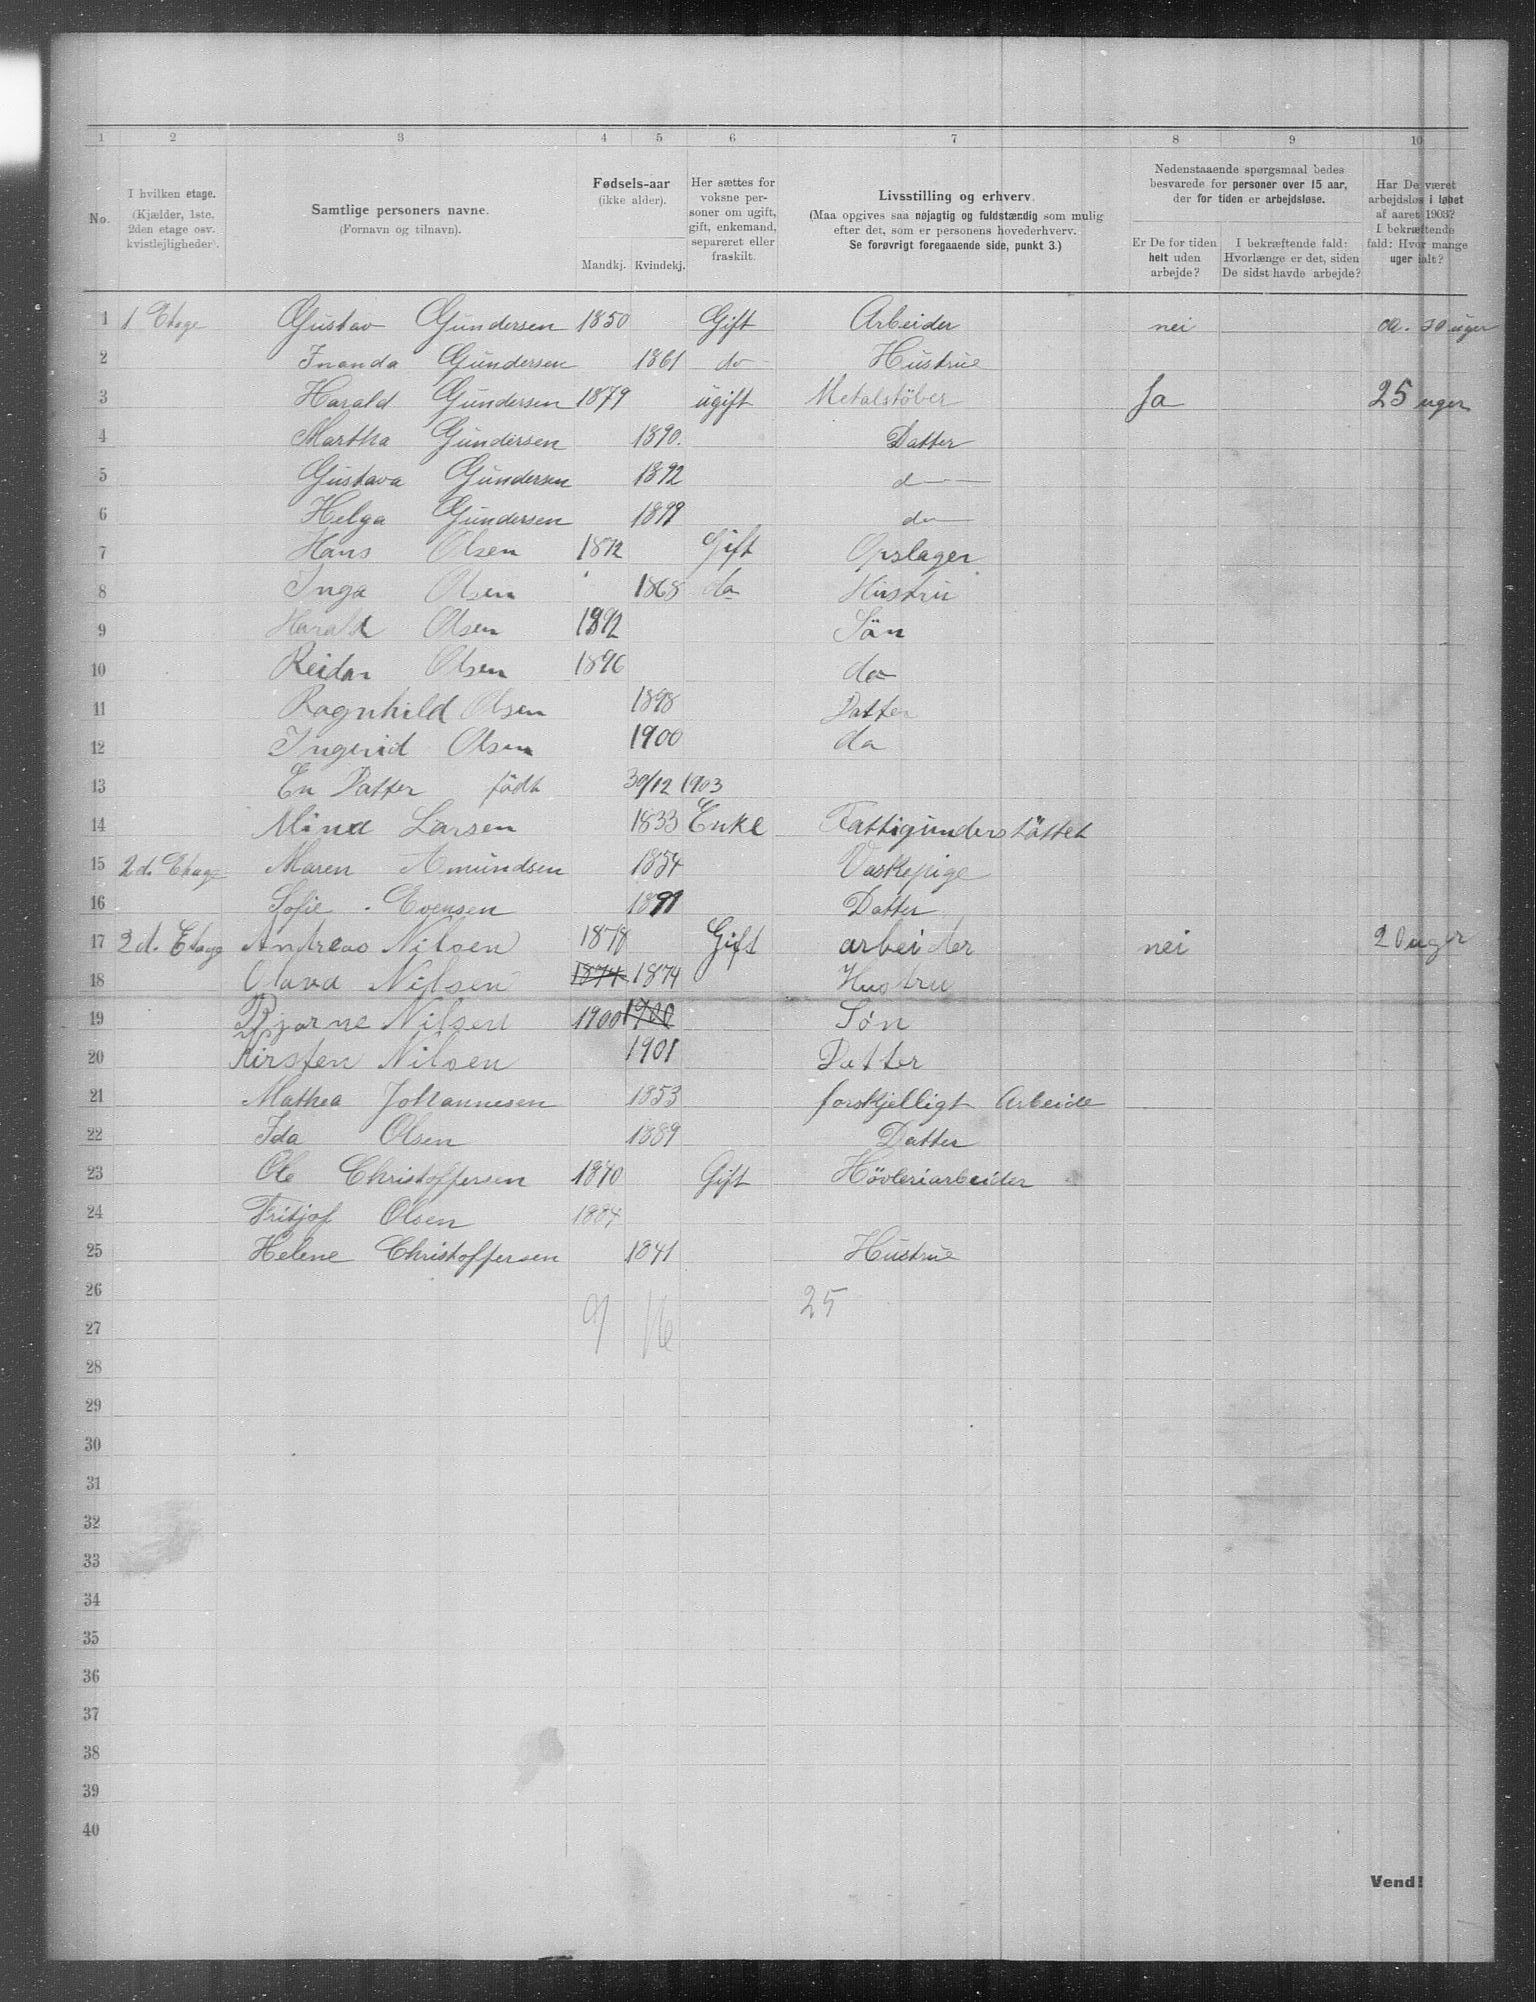 1 2 3 4 5 6 7 8 9 10
No.
I hvilken etage.
(Kjælder, 1ste, 2den etage osv. kvistlejligheder).
Samtlige personers navne.
(Fornavn og tilnavn).
Fødsels-aar
(ikke alder).
Mandkj. Kvindekj.
Her sættes for voksne personer om ugift, gift, enkemand, separeret eller fraskilt.
Livsstilling og erhverv.
(Maa opgives saa nøjagtig og fuldstændig som mulig efter det, som er personens hovederhverv.
Se forøvrigt foregaaende side, punkt 3.)
Nedenstaaende spørgsmaal bedes besvarede for personer over 15 aar, der for tiden er arbejdsløse.
Er De for tiden helt uden arbejde?
I bekræftende fald: Hvorlænge er det, siden De sidst havde arbejde?
Har De været arbejdsløs i løbet af aaret 1903? I bekræftende fald: Hvor mange uger ialt?
1 1 Etage Gustav Gundersen 1850 Gift Arbeider nei ca. 30 uger
2 Inanda Gundersen 1861 do Hustrue
3 Harald Gundersen 1879 ugift Metalstöber Ja 25 uger
4 Martha Gundersen 1890. Datter
5 Gustava Gundersen 1892 d
6 Helga Gundersen 1899 do
7 Hans Olsen 1872 Gift Opslager
8 Inga Olsen 1868 do Hustru
9 Harald Olsen 1892 Sön
10 Reidar Olsen 1896 do
11 Ragnhild Olsen 1898 Datter
12 Ingerid Olsen 1900 do
13 En Datter födt 30/12 1903
14 Mina Larsen 1833 Enke Fattigunderstöttet
15 2d. Etage Maren Amundsen 1854 Vaskepige
16 Sofie Evensen 1891 Datter
17 2d. Etage Andreas Nilsen 1878 Gift arbeider nei 20 uger
18 Olava Nilsen 1874 1874 Hustru
19 Bjarne Nilsen 1900 1900 Søn
20 Kirsten Nilsen 1901 Datter
21 Mathea Johannesen 1853 forskjelligt Arbeide
22 Ida Olsen 1889 Datter
23 Ole Christoffersen 1840 Gift Hövleriarbeider
24 Fritjof Olsen 1884
25 Helene Christoffersen 1841 Hustrue
26 9 16 25
27
28
29
30
31
32
33
34
35
36
37
38
39
40
Vend!